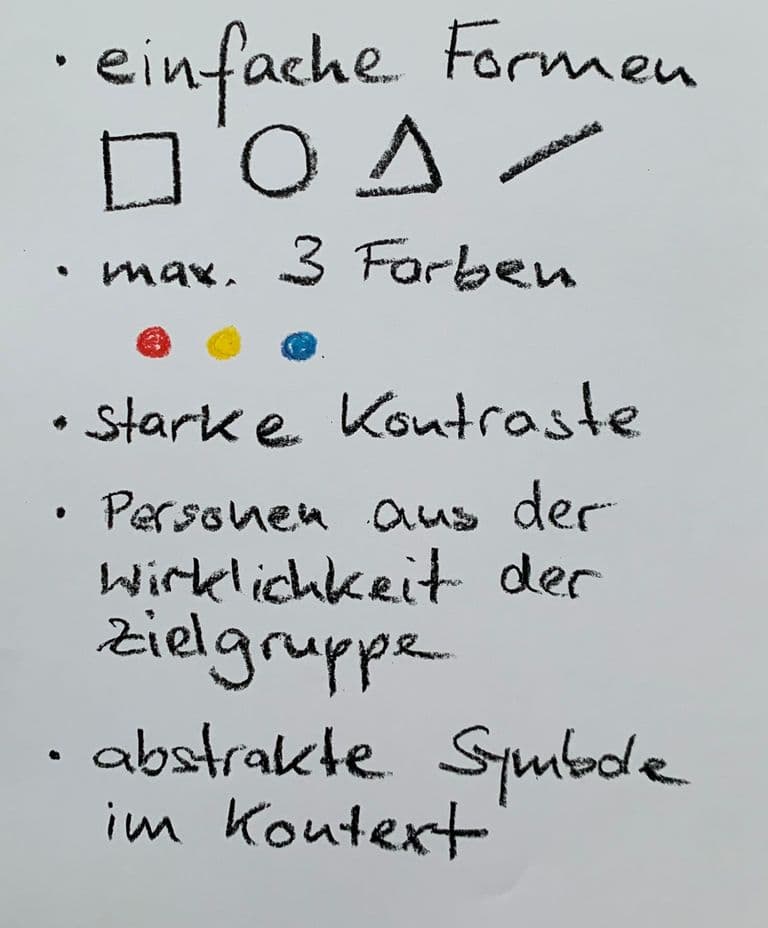 · einfache Formen
· max. 3 Farben
· starke Kontraste
· Personen aus der
Wirklichkeit der
Zielgruppe
· abstrakte Symbole
im Kontext